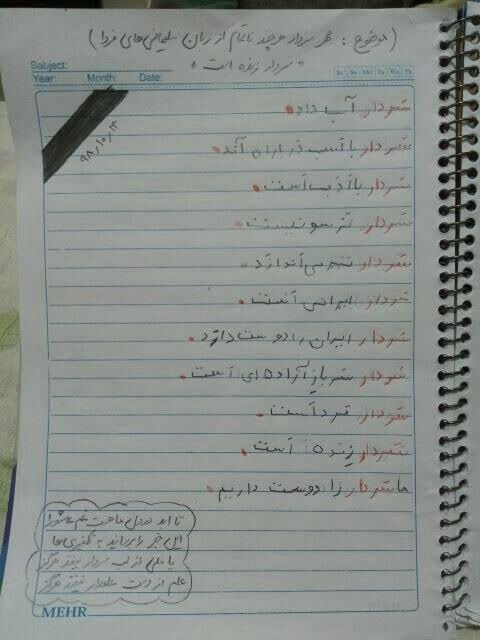 (موضوع: هر سردار هرچند ناتمام از زبان سلیمانی‌های فردا)
"سردار زنده است"
Subject:
Year: Month: Date:
۹۸/۱۰/۱۳
سردار آب داد.
سردار با اسب در باران آمد.
سردار با ادب است.
سردار ترسو نیست.
سردار تیر می‌اندازد.
سردار ایرانی است.
سردار ایران را دوست دارد.
سردار سرباز آزاده ای است.
سردار مرد است.
سردار زنده است.
ما سردار را دوست داریم.
تا ابد در دل ما هست غم عاشورا
این خبر را برسانید به تکفیری‌ها
یا علی از لب سردار نیفتد هرگز
علم از دست علمدار نیفتد هرگز
MEHR